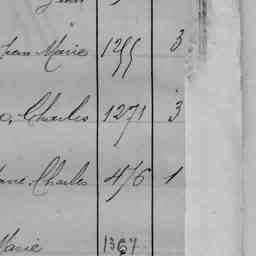 Jean Marie 1255 3
Charles 1271 3
Charles 476 1
Marie 1367